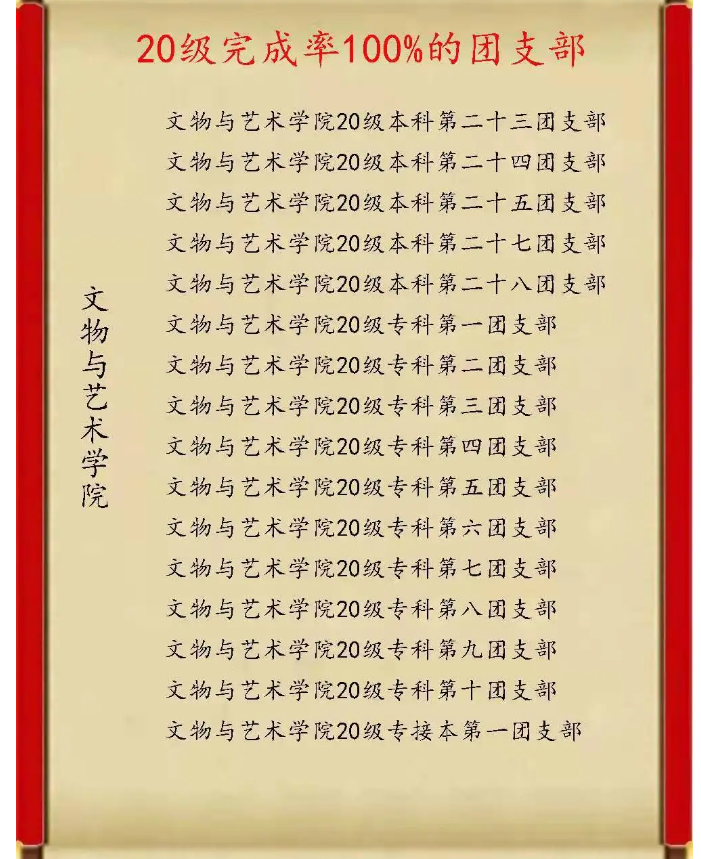 20级完成率100%的团支部
文物与艺术学院
文物与艺术学院20级本科第二十三团支部
文物与艺术学院20级本科第二十四团支部
文物与艺术学院20级本科第二十五团支部
文物与艺术学院20级本科第二十七团支部
文物与艺术学院20级本科第二十八团支部
文物与艺术学院20级专科第一团支部
文物与艺术学院20级专科第二团支部
文物与艺术学院20级专科第三团支部
文物与艺术学院20级专科第四团支部
文物与艺术学院20级专科第五团支部
文物与艺术学院20级专科第六团支部
文物与艺术学院20级专科第七团支部
文物与艺术学院20级专科第八团支部
文物与艺术学院20级专科第九团支部
文物与艺术学院20级专科第十团支部
文物与艺术学院20级专接本第一团支部